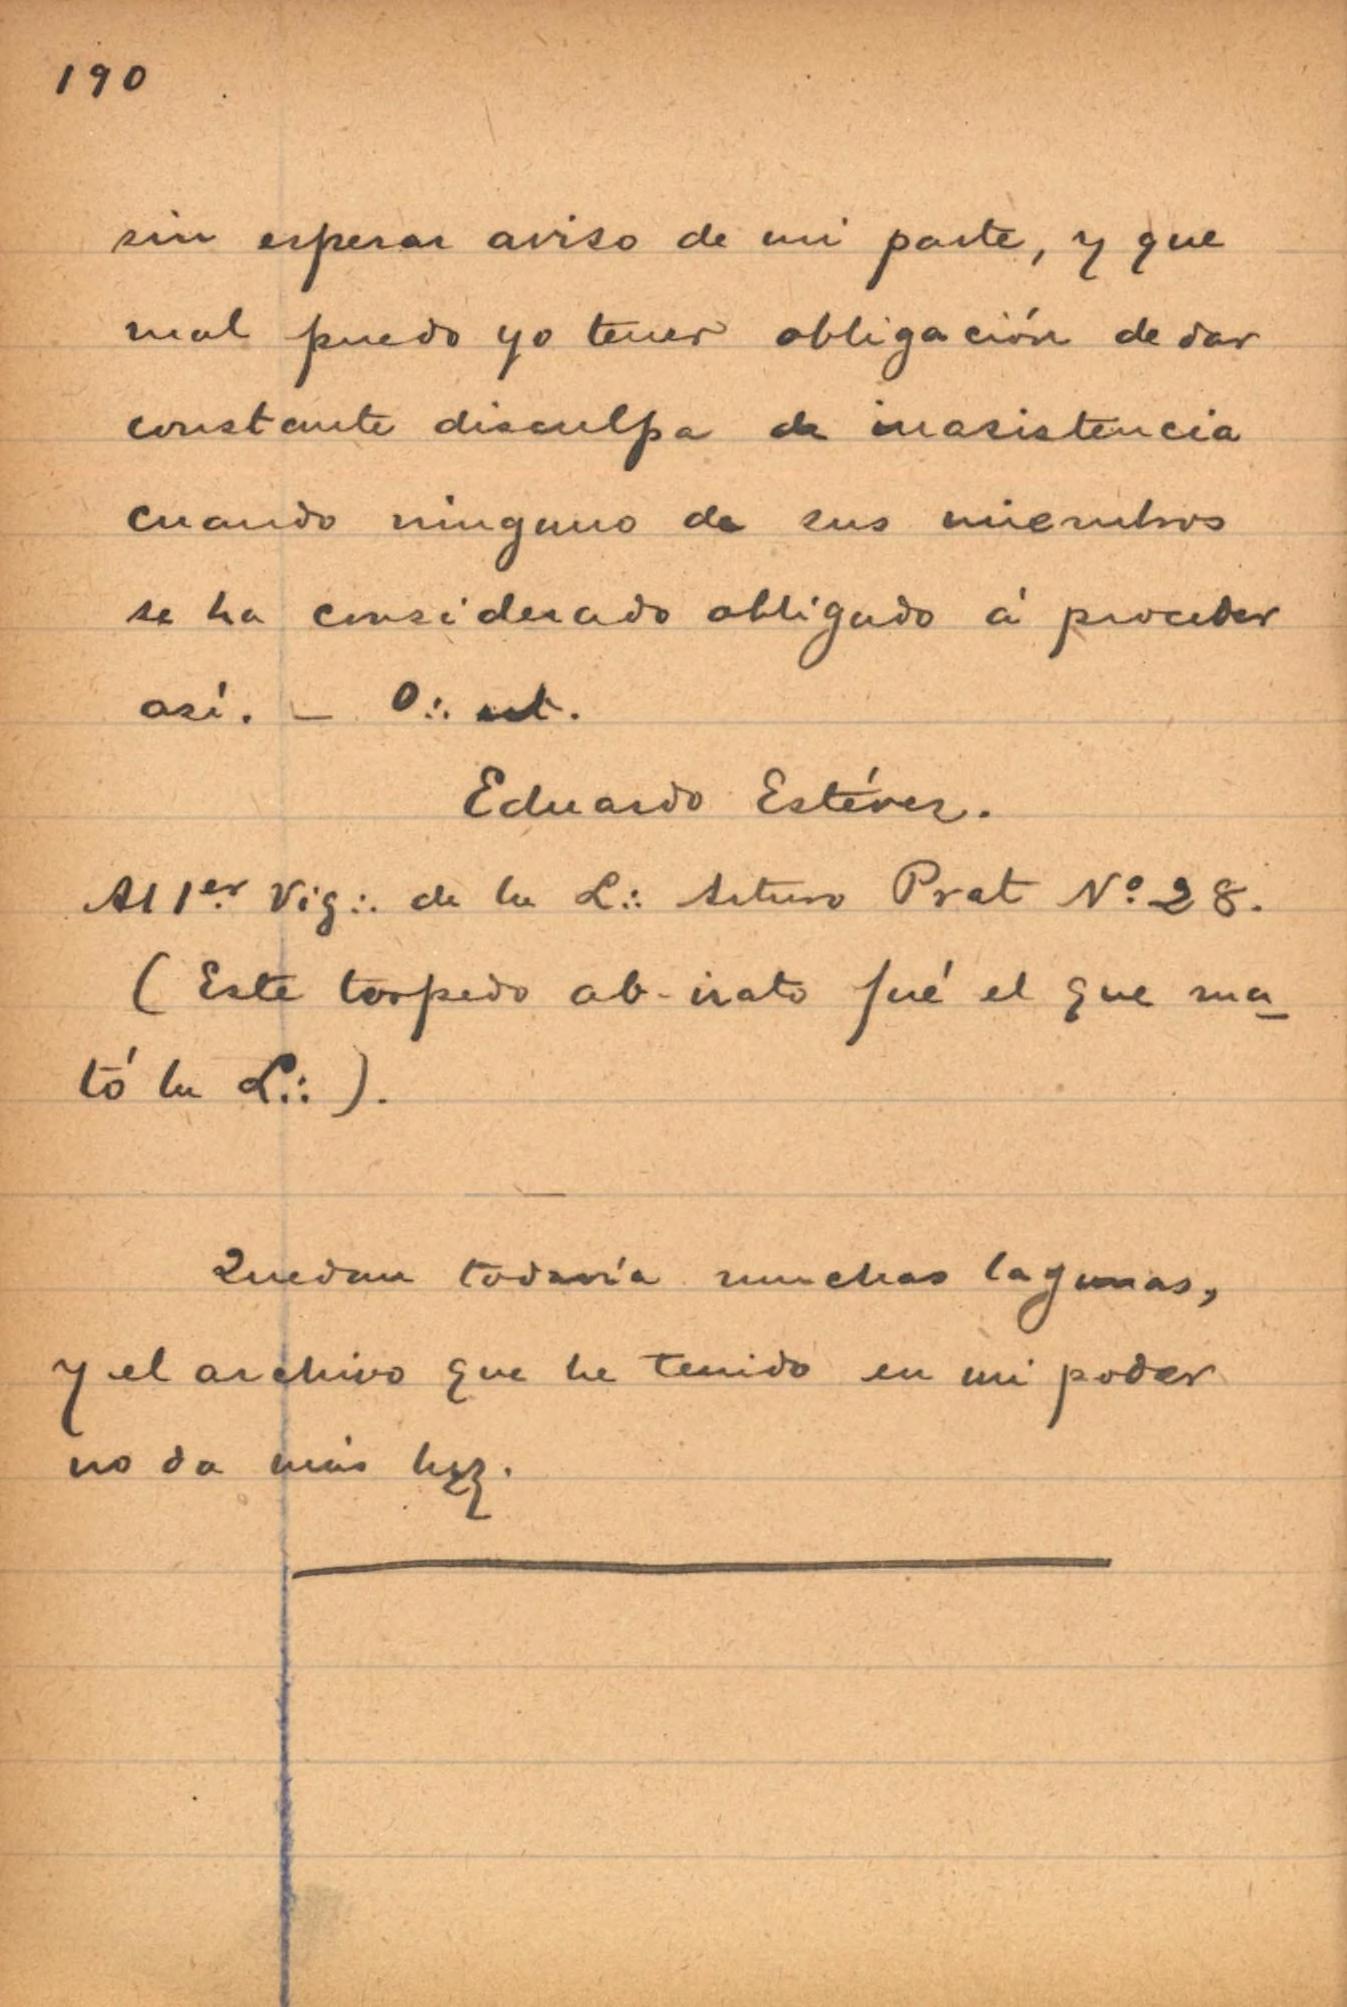 190
sin esperar aviso de mi parte, y que
mal puedo yo tener obligación de dar
constante disculpa de inasistencia
cuando ninguno de sus miembros
se ha considerado obligado á proceder
así. — O∴ ut.
Eduardo Estévez.
Al 1er Vig∴ de la L∴ Arturo Prat Nº 28.
( Este torpedo ab-irato fué el que ma-
tó la L∴ ).
Quedan todavía muchas lagunas,
y el archivo que he tenido en mi poder
no da más luz.